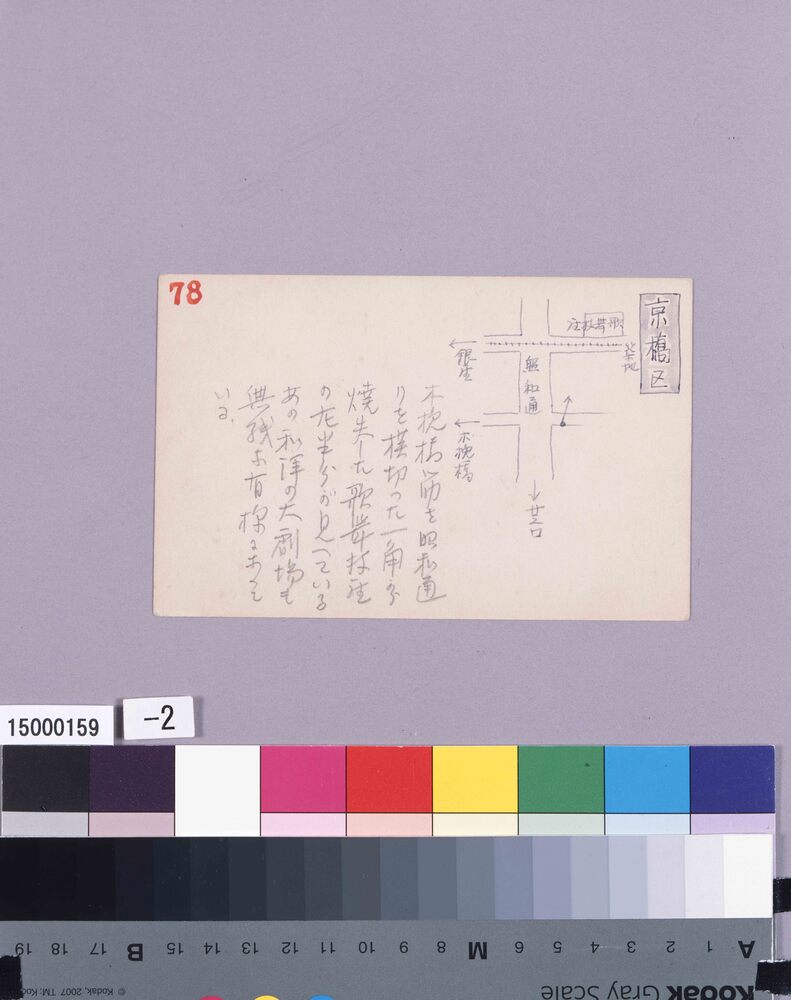 78
京橋区
歌舞伎座
築地
銀座
昭和通
木挽橋
芝口
木挽橋筋を昭和通
りを横切つた一角から
焼失した歌舞伎座
の左半分が見へている
あの私達の大劇場も
無残な有様になつて
いる。
15000159
-2
19 18 17 B 15 14 13 12 11 10 9 8 M 6 5 4 3 2 1 A
© Kodak, 2007 TM: Kod
KODAK Gray Scale